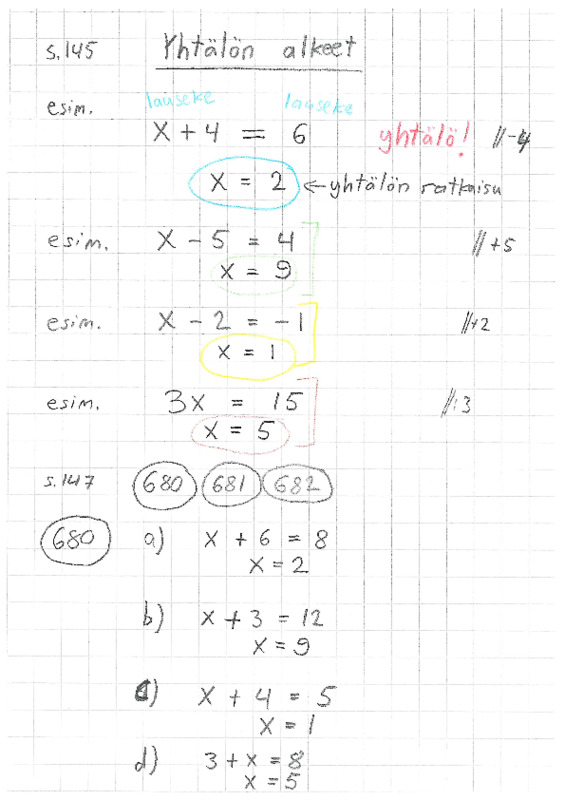 s.145 Yhtälön alkeet
esim. lauseke lauseke
x + 4 = 6 yhtälö! //-4
x = 2 ← yhtälön ratkaisu
esim. x - 5 = 4 //+5
x = 9
esim. x - 2 = -1 //+2
x = 1
esim. 3x = 15 //:3
x = 5
s.147 680 681 682
680 a) x + 6 = 8
x = 2
b) x + 3 = 12
x = 9
c) x + 4 = 5
x = 1
d) 3 + x = 8
x = 5